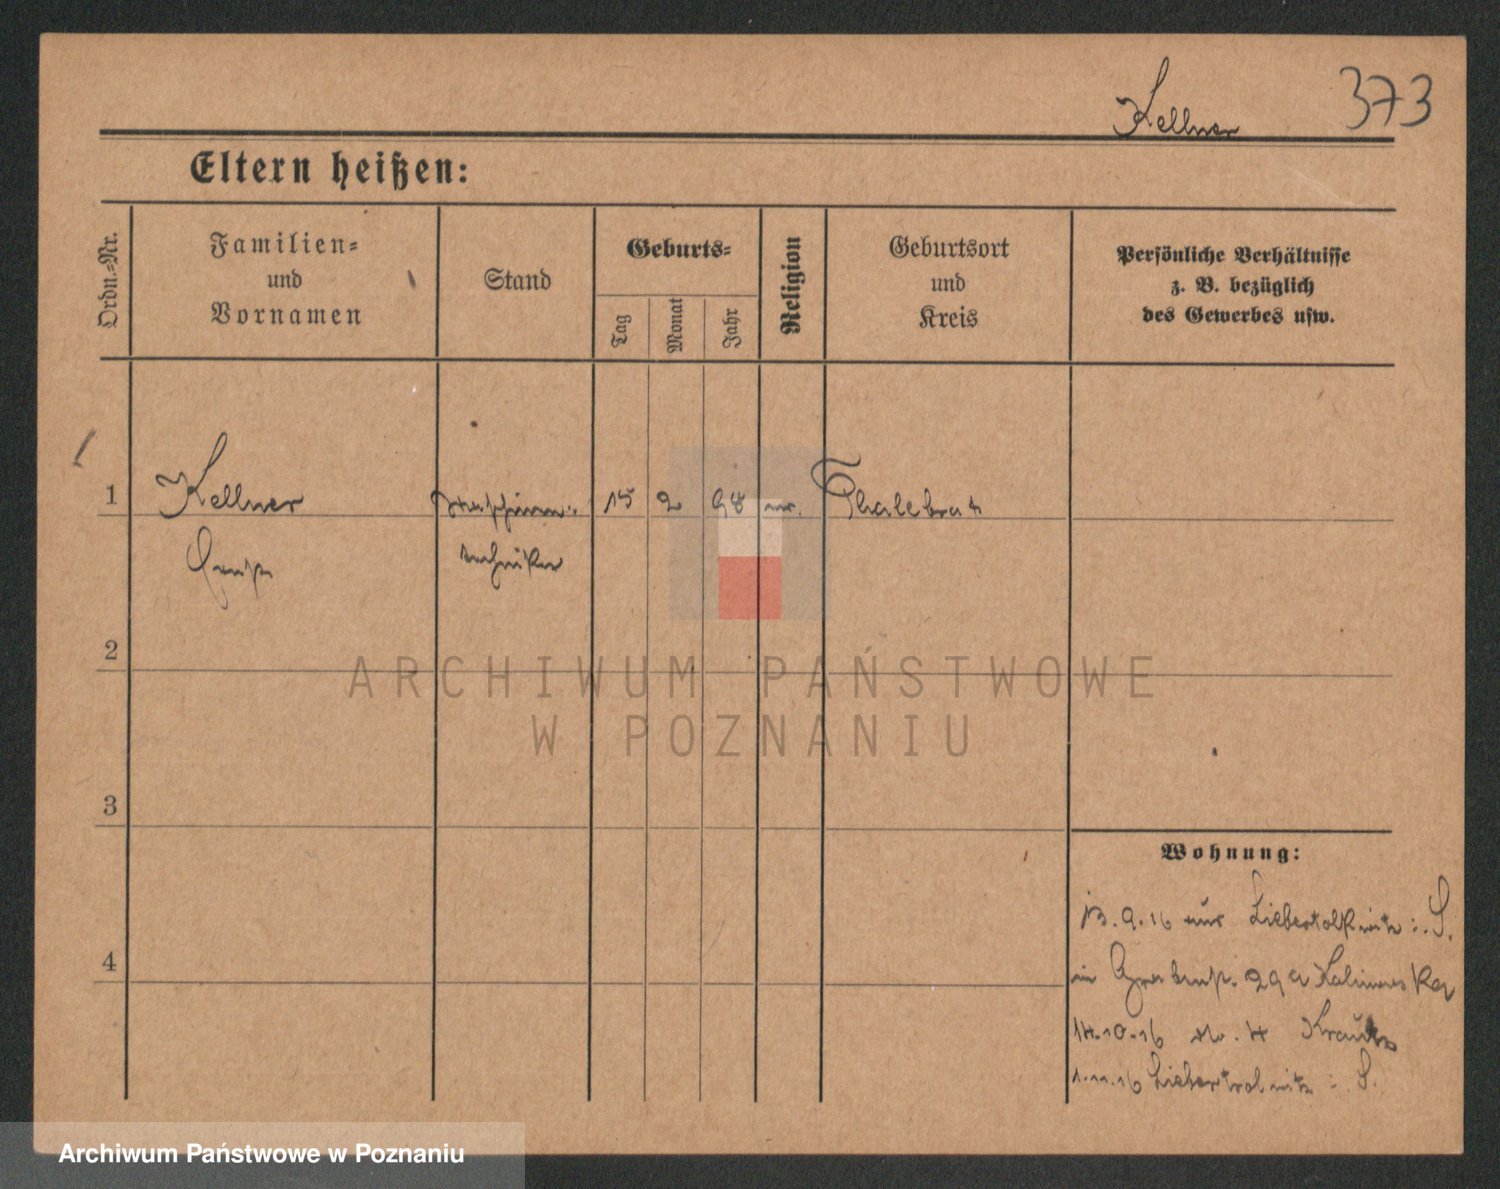 Kellner 373
Eltern heißen:
Ordn.-Nr.
Familien-
und
Vornamen
Stand
Geburts-
Tag
Monat
Jahr
Religion
Geburtsort
und
Kreis
Persönliche Verhältnisse
z. B. bezüglich
des Gewerbes usw.
1 Kellner Maschinen- 15 2 98 Thalebra
techniker
2
3
4
Wohnung:
13.9.16 Liebertwolkwitz
in 29a
14.10.16 4
1.11.16
ARCHIWUM PAŃSTWOWE
W POZNANIU
Archiwum Państwowe w Poznaniu